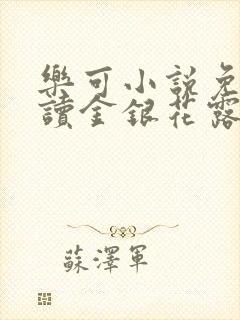 樂可小說免
讀金銀花露
蘇澤軍